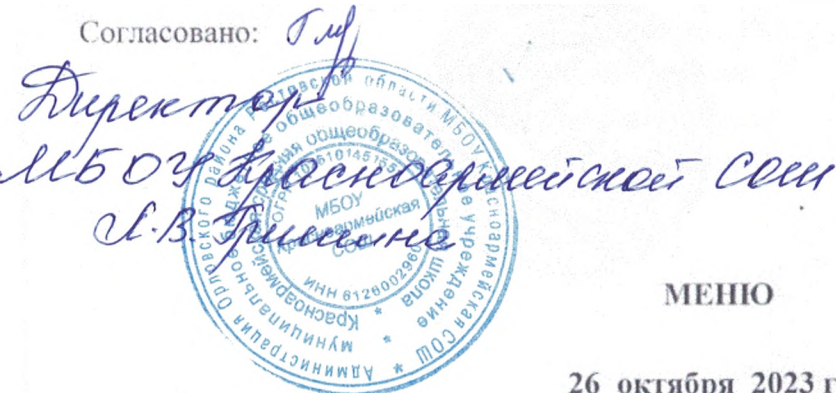 Согласовано:
Директор
МБОУ Красноармейской СОШ
МЕНЮ
26 октября 2023 г
Администрация Орловского района Ростовской области МБОУ Красноармейская СОШ
муниципальное бюджетное общеобразовательное учреждение
Красноармейская средняя общеобразовательная школа
МБОУ
Красноармейская
СОШ